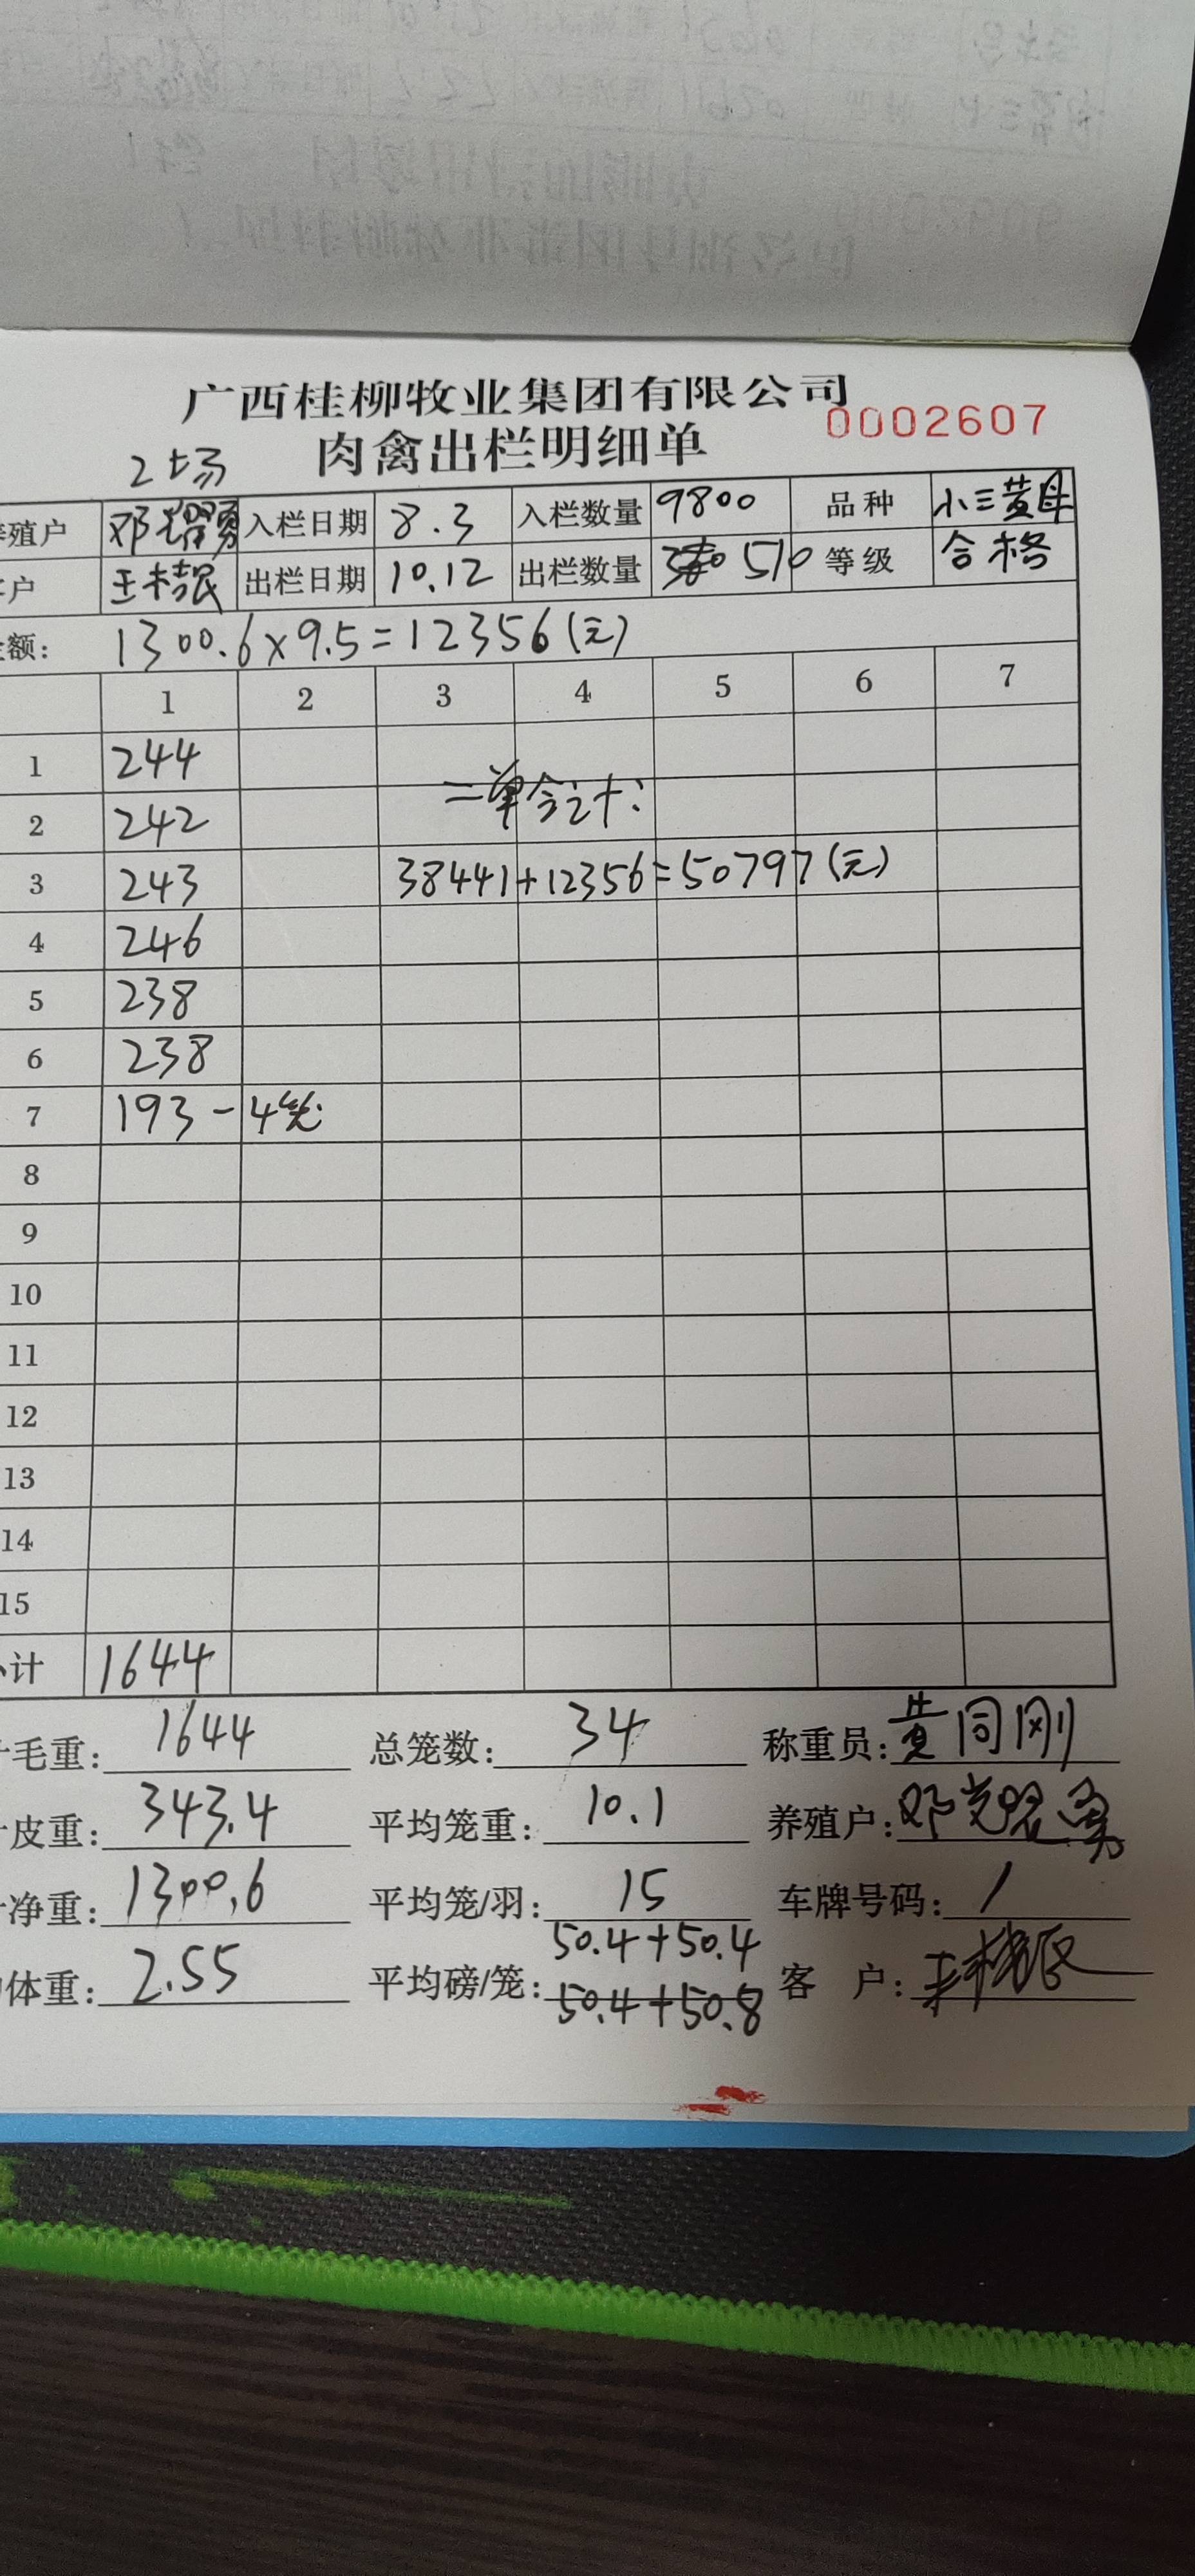 广西桂柳牧业集团有限公司
0002607
肉禽出栏明细单
2场
养殖户 入栏日期 8.3 入栏数量 9800 品种 小三黄母
户 出栏日期 10.12 出栏数量 510 等级 合格
额: 1300.6×9.5=12356(元)
1 2 3 4 5 6 7
1 244
2 242
二单合计:
3 243 38441+12356=50797(元)
4 246
5 238
6 238
7 193-4笼
8
9
10
11
12
13
14
15
计 1644
毛重: 1644 总笼数: 34 称重员: 黄同刚
皮重: 343.4 平均笼重: 10.1 养殖户:
净重: 1300.6 平均笼/羽: 15 车牌号码: /
体重: 2.55 平均磅/笼: 50.4+50.4 客户:
50.4+50.8